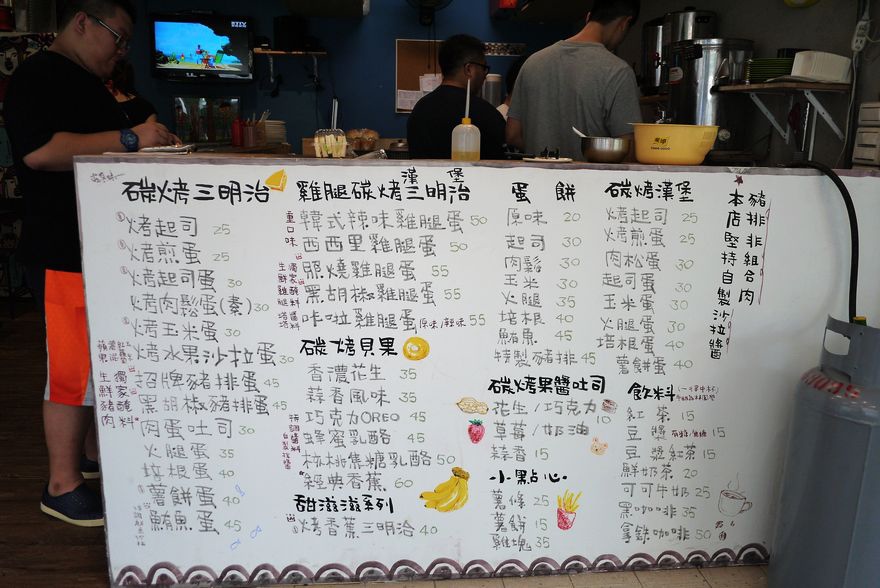 碳烤三明治
烤起司 25
烤煎蛋 25
烤起司蛋 30
烤肉鬆蛋(素) 30
烤玉米蛋 30
烤水果沙拉蛋 30
招牌豬排蛋 45
黑胡椒豬排蛋 45
肉蛋吐司 40
火腿蛋 35
培根蛋 40
薯餅蛋 45
鮪魚蛋 45
獨家醃料
生鮮豬肉
雞腿碳烤三明治
漢堡
重口味
韓式辣味雞腿蛋 50
西西里雞腿蛋 50
照燒雞腿蛋 55
黑胡椒雞腿蛋 55
咔啦雞腿蛋 原味/辣味 55
獨家醃料
生鮮雞腿
碳烤貝果
香濃花生 35
蒜香風味 35
巧克力OREO 45
蜂蜜乳酪 45
楓糖焦糖乳酪 50
經典香蕉 60
特調醬料
甜滋滋系列
烤香蕉三明治 40
蛋餅
原味 20
起司 30
肉鬆 30
玉米 30
火腿 35
培根 40
鮪魚 45
特製豬排 45
碳烤果醬吐司
花生/巧克力 10
草莓/奶油
蒜香 15
小點心
薯條 25
薯餅 15
雞塊 35
碳烤漢堡
烤起司 25
烤煎蛋 25
肉松蛋 30
起司蛋 30
玉米蛋 30
火腿蛋 30
培根蛋 40
薯餅蛋 40
飲料
紅茶 15
豆漿 15
豆漿紅茶 15
鮮奶茶 20
可可牛奶 25
黑咖啡 35
拿鐵咖啡 50
豬排非組合肉
本店堅持自製沙拉醬